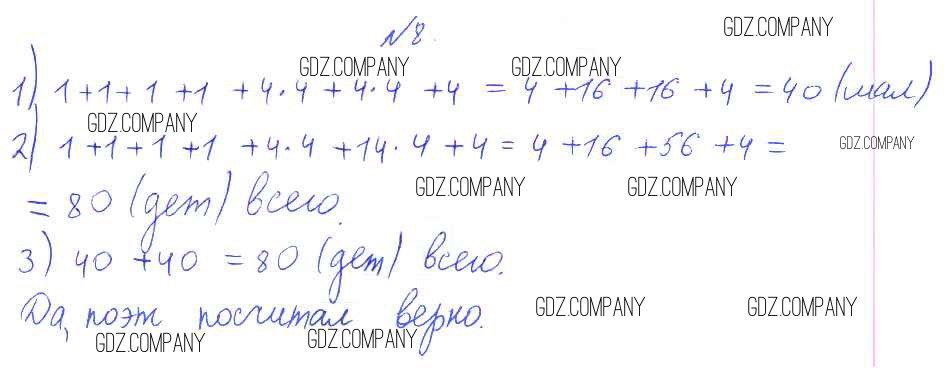 №8.
GDZ.COMPANY
GDZ.COMPANY GDZ.COMPANY
1) 1+1+1+1+4·4+4·4+4=4+16+16+4=40 (мал)
GDZ.COMPANY
2) 1+1+1+1+4·4+14·4+4=4+16+56+4=
GDZ.COMPANY
GDZ.COMPANY GDZ.COMPANY
=80 (дет) всего.
3) 40+40=80 (дет) всего.
GDZ.COMPANY GDZ.COMPANY
Да, поэт посчитал верно.
GDZ.COMPANY GDZ.COMPANY